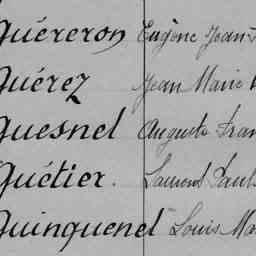 Guéreron Eugène Jean
Guérez Jean Marie
Guesnel Auguste
Guétier. Laurent
Guinquenel Louis